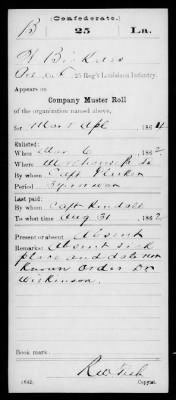 (Confederate.)
B 25 La.
Co. , 25 Reg't Louisiana Infantry.
Appears on
Company Muster Roll
of the organization named above,
for Mar & Apl , 186
Enlisted:
When Mar 6 , 186 2
Where
By whom Capt
Period 3 years or war
Last paid:
By whom Capt Kendall
To what time Aug 31 , 1862
Present or absent Absent
Remarks: Absent sick
place and date not
known order Dr
Dickinson.
Book mark:
(642) Copyist.